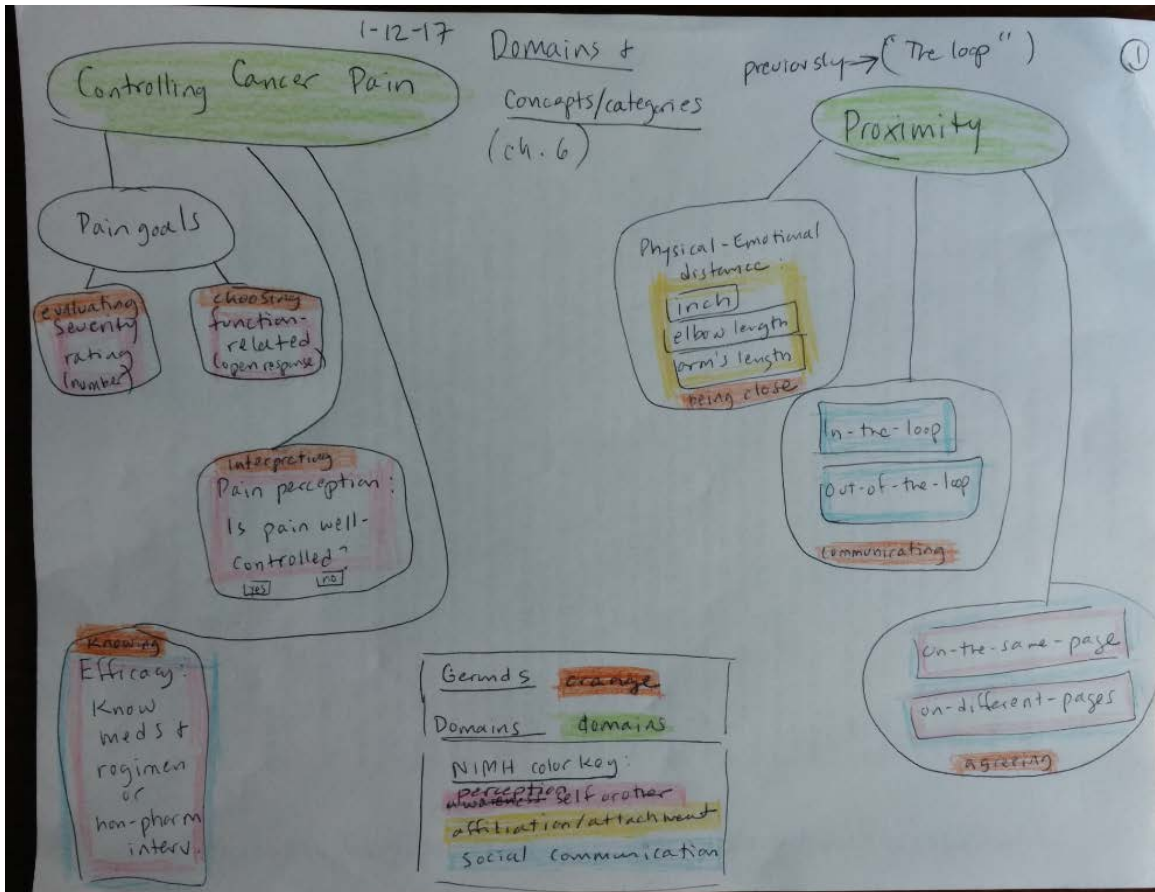 1-12-17
Domains +
Concepts/categories
(ch. 6)
previously → ("The loop")
1
Controlling Cancer Pain
Pain goals
evaluating
Severity
rating
(number)
choosing
function-
related
(open response)
Interpreting
Pain perception:
Is pain well-
controlled?
yes no
Knowing
Efficacy:
Know
meds +
regimen
or
non-pharm
interv.
Proximity
Physical-Emotional
distance:
inch
elbow length
arm's length
being close
In-the-loop
out-of-the-loop
communicating
on-the-same-page
on-different-pages
agreeing
Gerunds orange
Domains domains
NIMH color key:
perception
awareness self or other
affiliation/attachment
social communication